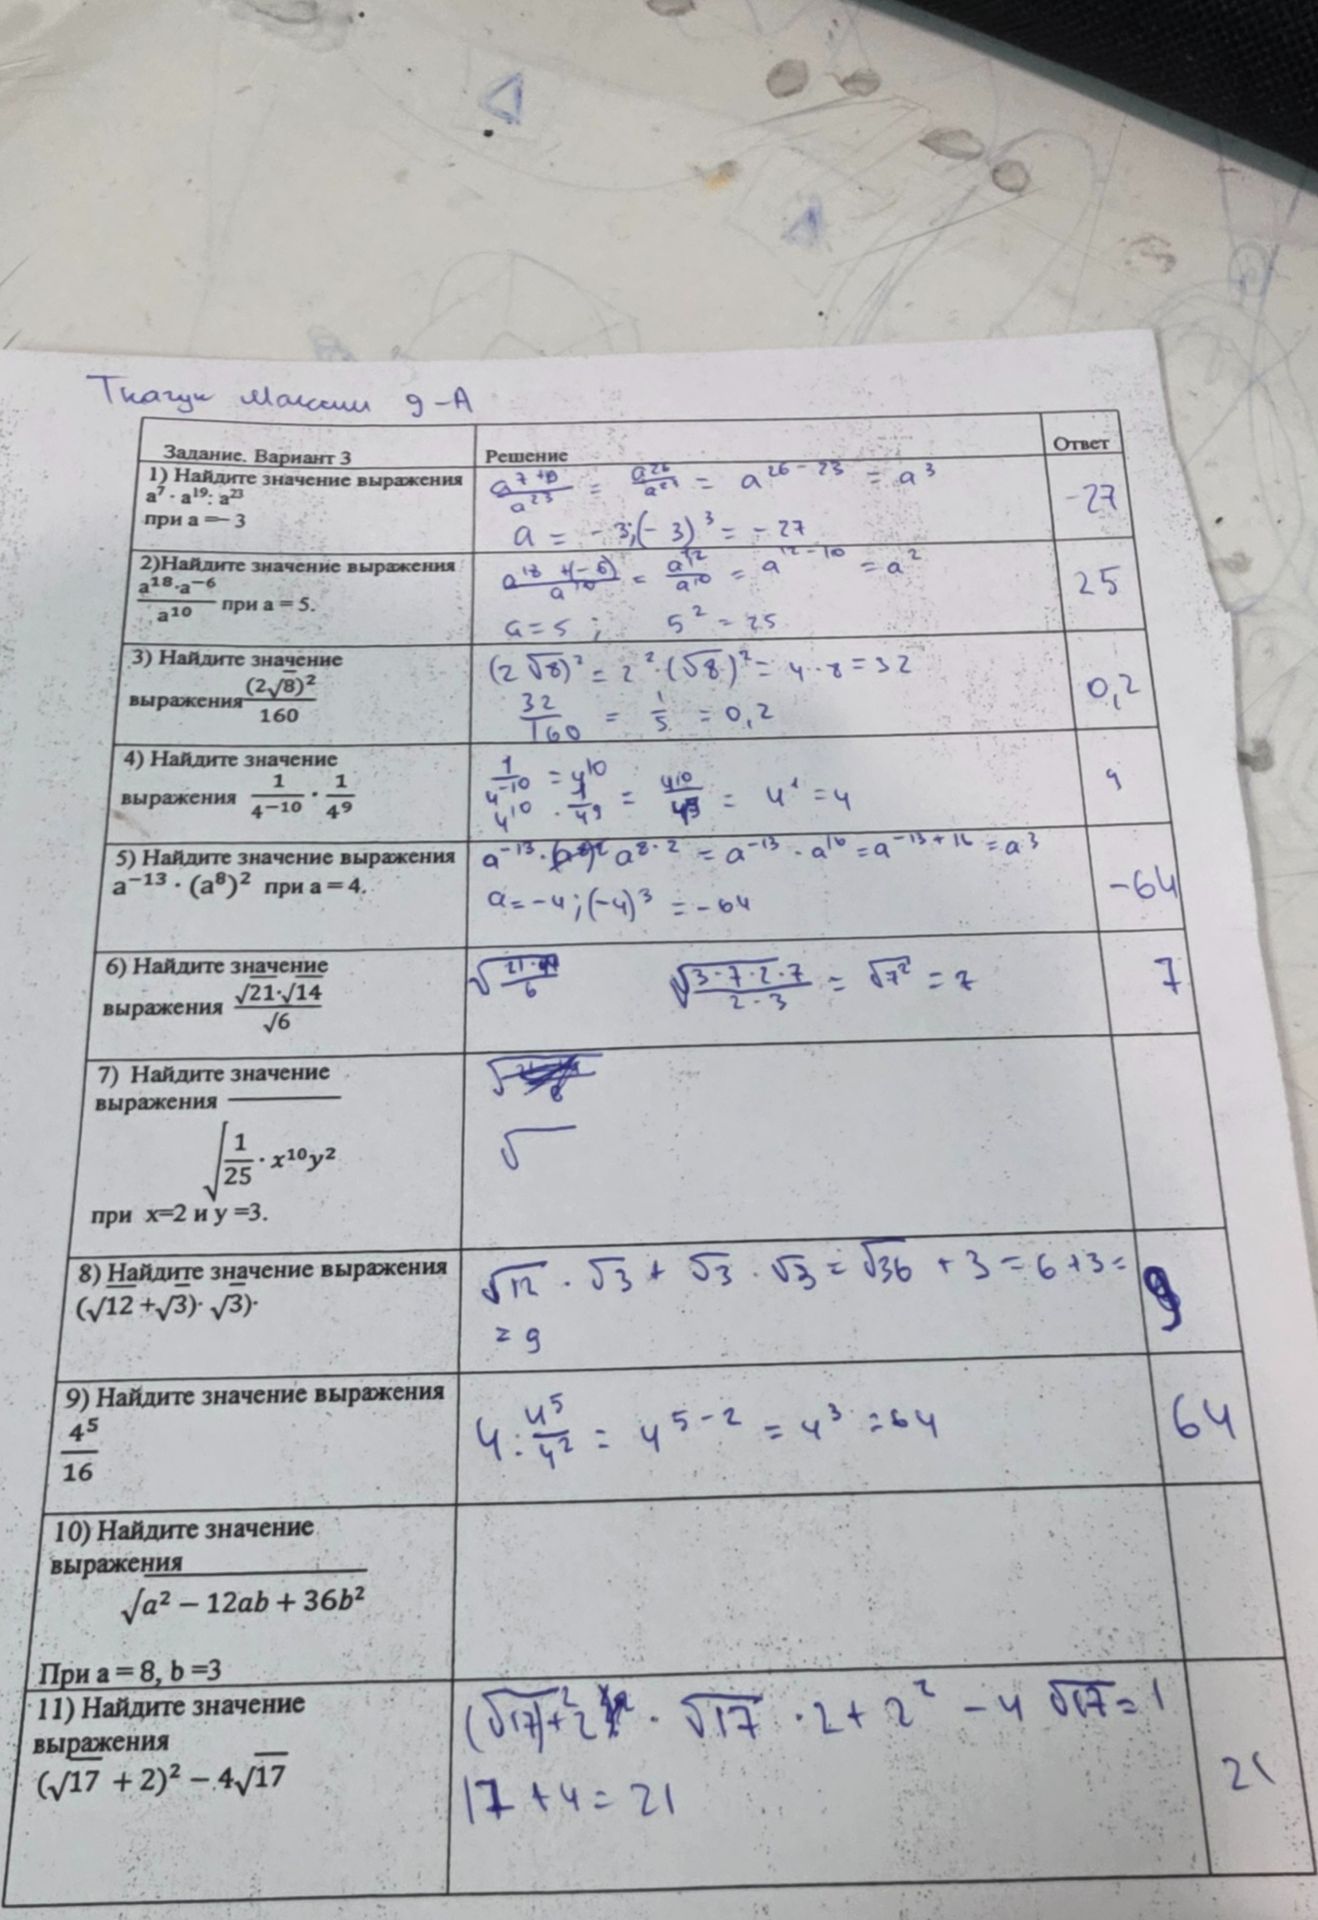 Ткачук Максим 9-А
Задание. Вариант 3
Решение
Ответ
1) Найдите значение выражения
a⁷ · a¹⁹: a²³
при a =– 3
a²⁶⁻²³ = a³
a = -3; (-3)³ = -27
-27
2)Найдите значение выражения
a¹⁸·a⁻⁶ / a¹⁰ при a = 5.
a¹⁸⁺⁽⁻⁶⁾/a¹⁰ = a¹²/a¹⁰ = a¹²⁻¹⁰ = a²
a=5; 5² = 25
25
3) Найдите значение
выражения (2√8)² / 160
(2√8)² = 2²·(√8)² = 4·8 = 32
32/160 = 1/5 = 0,2
0,2
4) Найдите значение
выражения 1/4⁻¹⁰ · 1/4⁹
1/4⁻¹⁰ = 4¹⁰
4¹⁰ · 1/4⁹ = 4¹⁰/4⁹ = 4¹ = 4
4
5) Найдите значение выражения
a⁻¹³ · (a⁸)² при a = 4.
a⁻¹³ · a⁸·² = a⁻¹³ · a¹⁶ = a⁻¹³⁺¹⁶ = a³
a = -4; (-4)³ = -64
-64
6) Найдите значение
выражения √21·√14 / √6
√(3·7·2·7 / 2·3) = √7² = 7
7
7) Найдите значение
выражения
√(1/25 · x¹⁰y²)
при x=2 и y =3.
√
8) Найдите значение выражения
(√12 +√3)· √3)·
√12 · √3 + √3 · √3 = √36 + 3 = 6+3 =
= 9
9
9) Найдите значение выражения
4⁵ / 16
4: 4⁵/4² = 4⁵⁻² = 4³ = 64
64
10) Найдите значение
выражения
√a² − 12ab + 36b²
При a = 8, b =3
11) Найдите значение
выражения
(√17 + 2)² − 4√17
(√17)²+2 · √17 · 2 + 2² − 4 √17 =
17 + 4 = 21
21